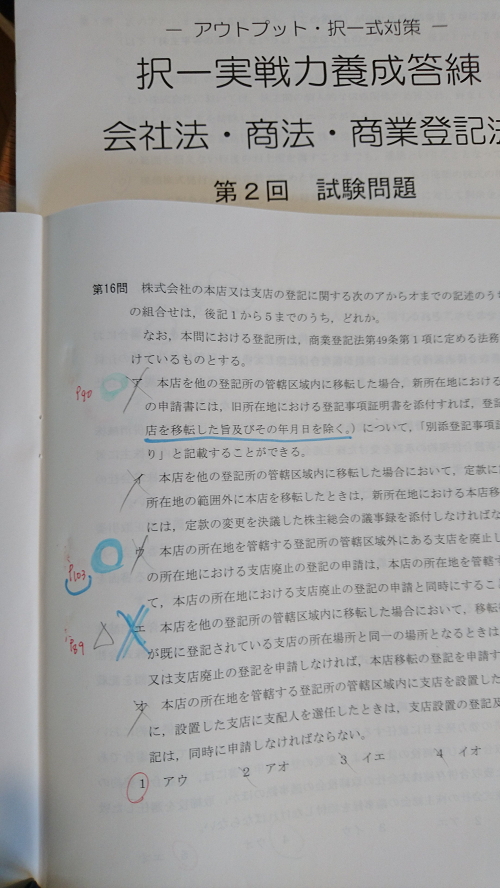 ― アウトプット・択一式対策 ―
択一実戦力養成答練
会社法・商法・商業登記法
第2回 試験問題
第16問 株式会社の本店又は支店の登記に関する次のアからオまでの記述のうち
の組合せは，後記1から5までのうち，どれか。
なお，本問における登記所は，商業登記法第49条第1項に定める法務
けているものとする。
P90
ア 本店を他の登記所の管轄区域内に移転した場合，新所在地における
の申請書には，旧所在地における登記事項証明書を添付すれば，登記
店を移転した旨及びその年月日を除く。）について，「別添登記事項証
り」と記載することができる。
イ 本店を他の登記所の管轄区域内に移転した場合において，定款に
所在地の範囲外に本店を移転したときは，新所在地における本店移
には，定款の変更を決議した株主総会の議事録を添付しなければな
P103
ウ 本店の所在地を管轄する登記所の管轄区域外にある支店を廃止し
の所在地における支店廃止の登記の申請は，本店の所在地を管轄す
て，本店の所在地における支店廃止の登記の申請と同時にするこ
P89
エ 本店を他の登記所の管轄区域内に移転した場合において，移転
が既に登記されている支店の所在場所と同一の場所となるときは
又は支店廃止の登記を申請しなければ，本店移転の登記を申請す
オ 本店の所在地を管轄する登記所の管轄区域内に支店を設置した
に，設置した支店に支配人を選任したときは，支店設置の登記及
記は，同時に申請しなければならない。
1 アウ 2 アオ 3 イエ 4 イオ